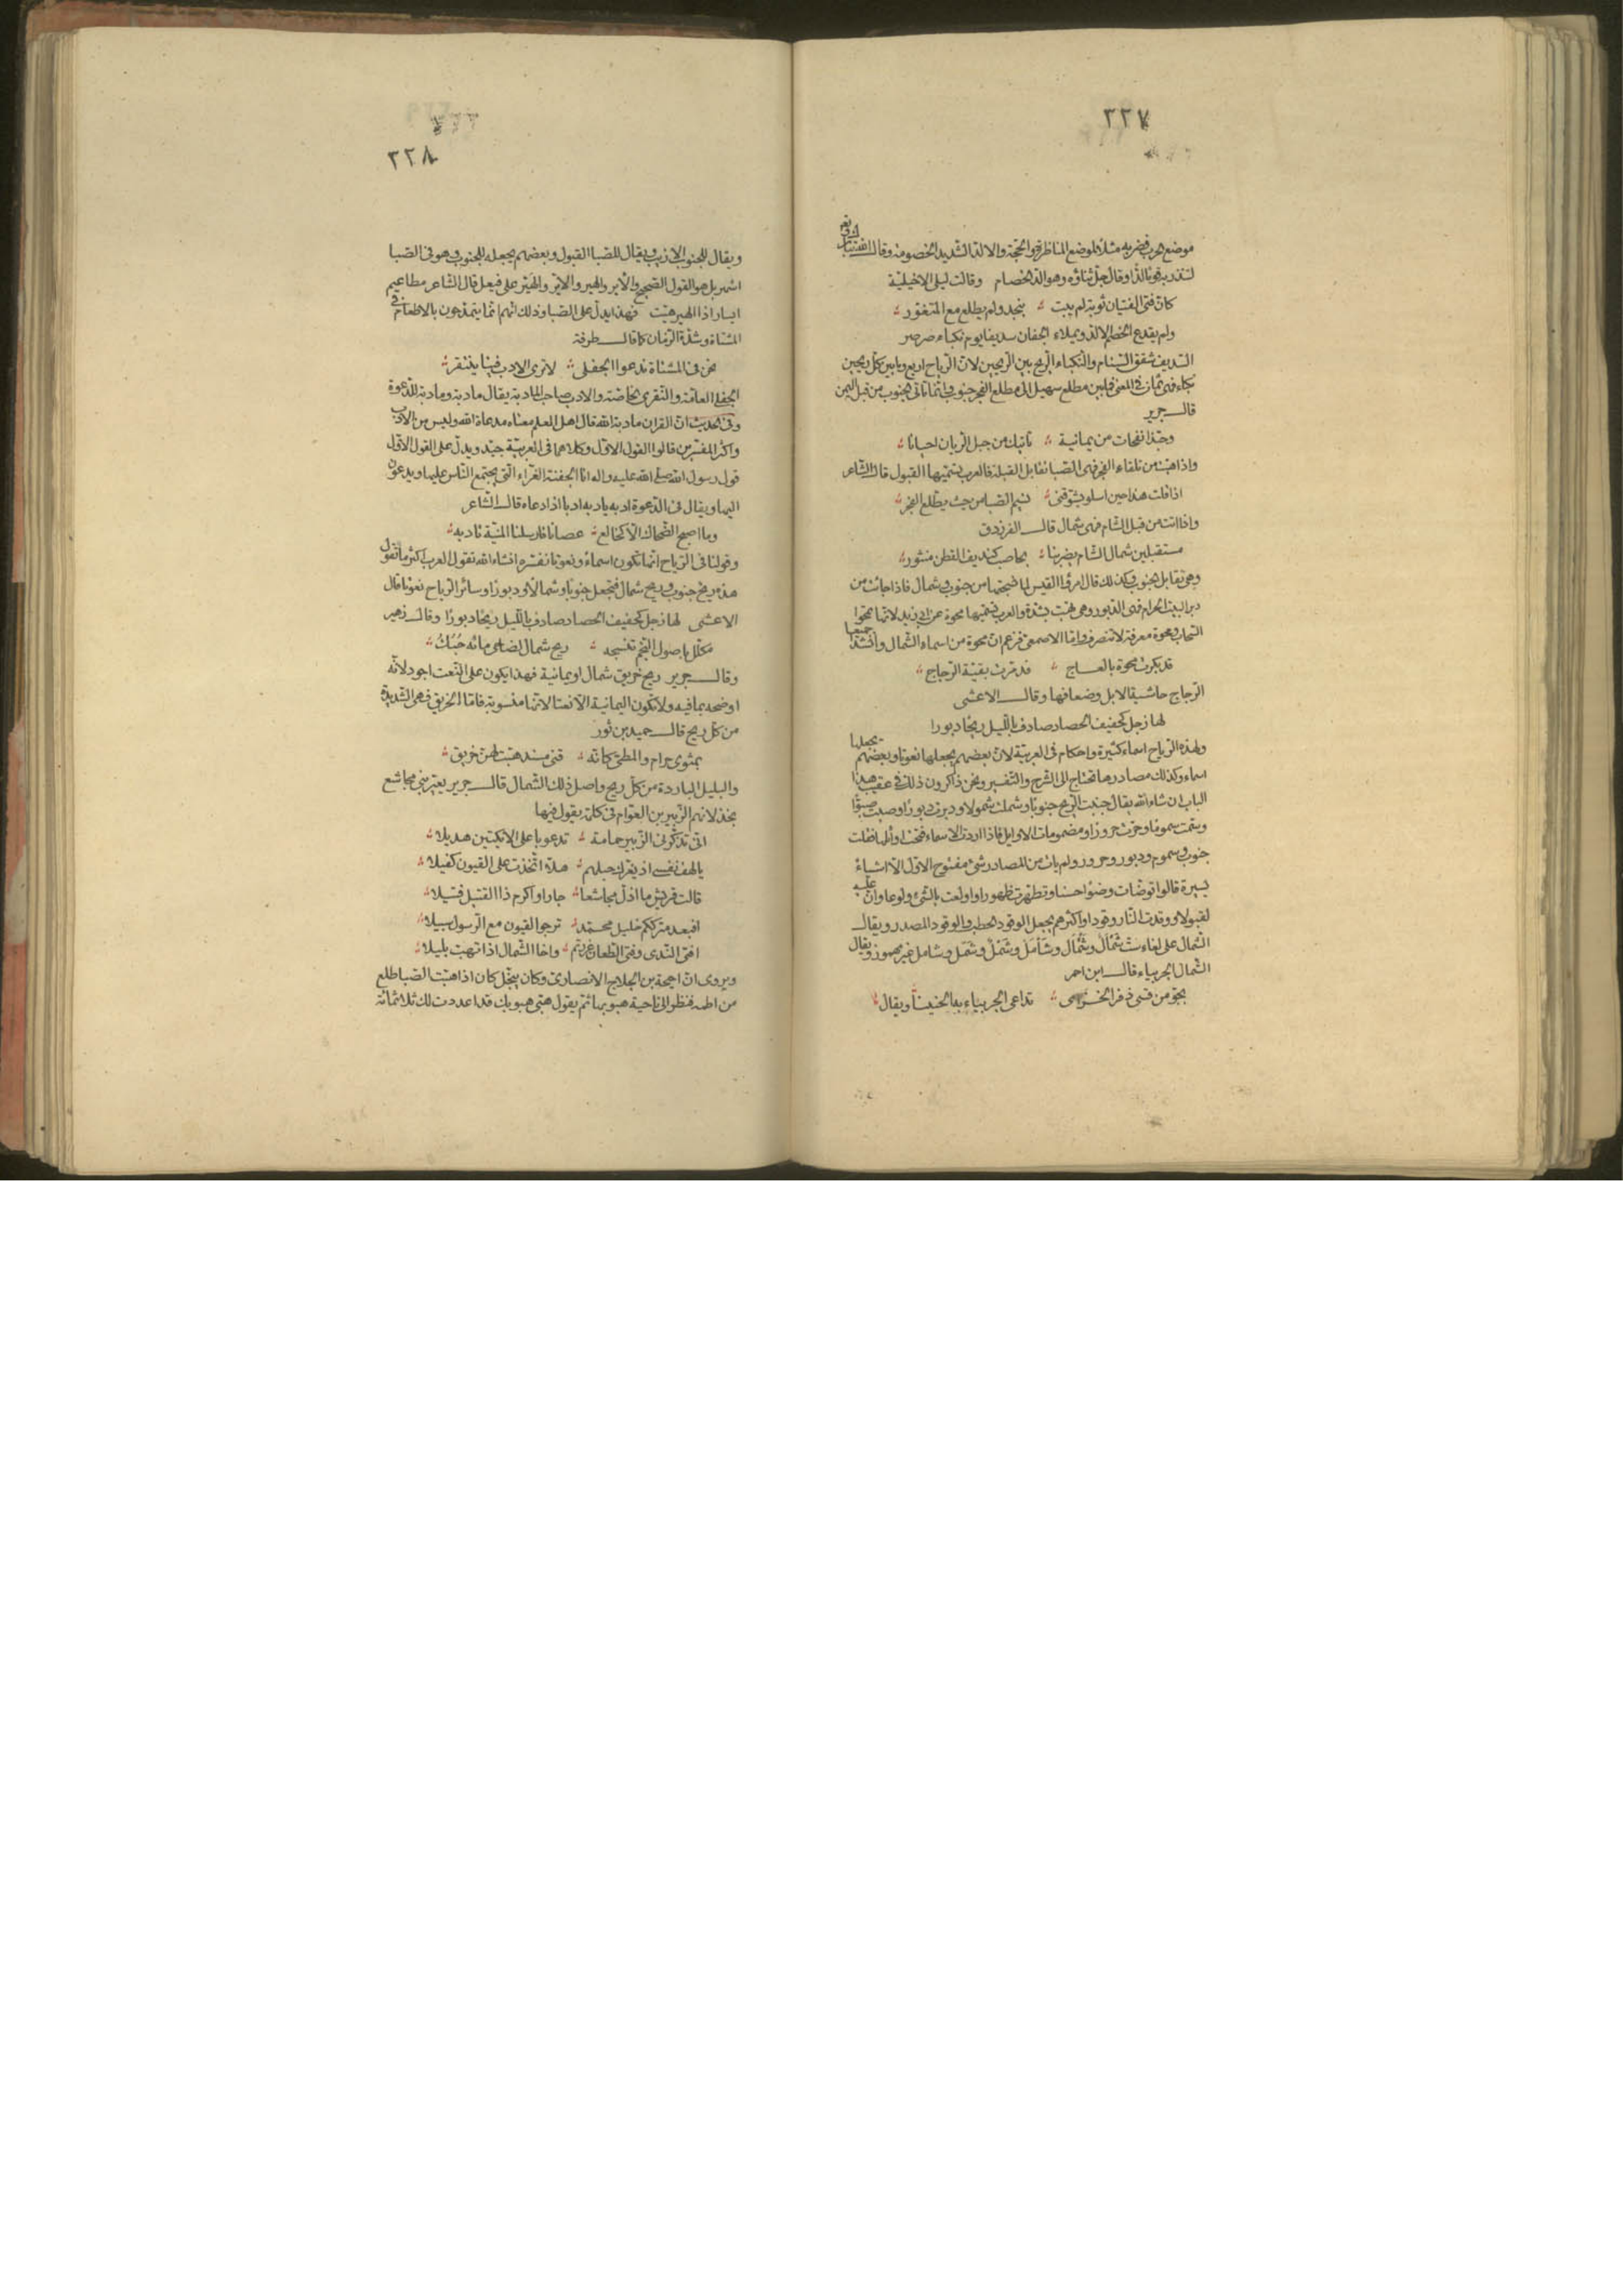 ٣٢٧
موضع الحرب فضربه مثلا لموضع المناظرة والحجة والالد الشديد الخصومة وقال الله تبارك وتعالى
لتنذر به قوما لدا وقال جل ثناؤه وهو الد الخصام وقالت ليلى الاخيلية
كان فتى الفتيان توبة لم يبت بنجد ولم يطلع مع المتغور
ولم يقدع الخصم الالد ويملاء الجفان سديفا يوم نكباء صرصر
السديف شقق السنام والنكباء الريح بين الريحين لان الرياح اربع وما بين كل ريحين
نكباء فهي ثمان في المعنى فما بين مطلع سهيل الى مطلع الفجر جنوب وانما تاتى الجنوب من قبل اليمن
قال جرير
وحبذا نفحات من يمانية تاتيك من جبل الريان احيانا
واذا هبت من تلقاء الفجر فهى الصبا تقابل القبلة فالعرب تسميها القبول قال الشاعر
اذا قلت هذا حين اسلو يشوقنى نسيم الصبا من حيث يطلع الفجر
واذا اتت من قبل الشام فهى شمال قال الفرزدق
مستقبلين شمال الشام يضربنا بحاصب كنديف القطن منثور
وهى تقابل الجنوب وكذلك قال امرؤ القيس لما نسجتها من جنوب وشمال فاذا جائت من
دبر البيت الحرام فهى الدبور وهى تهب بشدة والعرب تسميها محوة عن ابى زيد لانها تمحوا
السحاب ومحوة معرفة لا تنصرف واما الاصمعى فزعم ان محوة من اسماء الشمال وانشدا جميعا
قد بكرت محوة بالعجاج فدمرت بقية الرجاج
الرجاج حاشية الابل وضعافها وقال الاعشى
لها زجل كحفيف الحصاد صادف بالليل ريحا دبورا
ولهذه الرياح اسماء كثيرة واحكام فى العربية لان بعضهم يجعلها نعوتا وبعضهم يجعلها
اسماء وكذلك مصادرها تحتاج الى الشرح والتفسير ونحن ذاكرون ذلك فى عقب هذا
الباب ان شاء الله يقال جنبت الريح جنوبا وشملت شمولا ودبرت دبورا وصبت صبوا
وسمت سموما وحرت حرورا مضمومات الاوايل فاذا اردت الاسماء فتحت اوائلها فقلت
جنوب وسموم ودبور وحرور ولم يات من المصادر شئ مفتوح الاول الا اشياء
يسيرة قالوا توضات وضوءا حسنا وتطهرت طهورا واولعت بالشئ ولوعا وان عليه
لقبولا ووقدت النار وقودا واكثرهم يجعل الوقود الحطب والوقود المصدر ويقال
الشمال على لغات ست شمأل وشمال وشأمل وشمل وشمل وشامل غير مهموز ويقال
للشمال الجربياء قال ابن احمر
بجو من قسى ذفر الخزامى تداعى الجربياء به الحنينا ويقال
٣٢٨
ويقال للجنوب الازيب ويقال للصبا القبول وبعضهم يجعله للجنوب وهو فى الصبا
اشهر بل هو القول الصحيح والأير والهير والاير والهير على فيعل قال الشاعر مطاعيم
ايسار اذا الهير هبت فهذا يدل على الصبا وذلك انهم انما يتمدحون بالاطعام فى
المشتاة وشدة الزمان كما قال طرفة
نحن فى المشتاة ندعوا الجفلى لا ترى الادب فينا ينتقر
الجفلى العامة والنقرى الخاصة والادب صاحب المادبة يقال مادبة ومادبة للدعوة
وفى الحديث ان القران مادبة الله قال اهل العلم معناه مدعاة الله وليس من الادب
واكثر المفسرين قالوا القول الاول وكلاهما فى العربية جيد ويدل على القول الاول
قول رسول الله صلى الله عليه واله انا الجفنة الغراء التى يجتمع الناس عليها ويدعون
اليها ويقال فى الدعوة ادبه يادبه ادبا اذا دعاه قال الشاعر
وما اصبح الضحاك الا كخالع عصانا فارسلنا المنية تادبه
وقولنا فى الرياح انها تكون اسماء ونعوتا نفسره انشاء الله نقول العرب اكثر ما تقول
هذه ريح جنوب وريح شمال فتجعل جنوبا وشمالا ودبورا وسائر الرياح نعوتا قال
الاعشى لها زجل كحفيف الحصاد صادف بالليل ريحا دبورا وقال زهير
مكلل باصول النجم تنسجه ريح شمال لضاحى مائه حبك
وقال جرير ريح خريق شمال او يمانية فهذا يكون على النعت اجود لانه
اوضحه بما فيه ولا تكون اليمانية الا نعتا لانها منسوبة فاما الخريق فهى الشديدة
من كل ريح قال حميد بن ثور
بمثوى حرام والمطى كانه قنى مسند هبت لهن خريق
والبليل الباردة من كل ريح واصل ذلك الشمال قال جرير يعير بنى مجاشع
بخذلانهم الزبير بن العوام فى كلمة يقول فيها
انى تذكرنى الزبير حمامة تدعو باعلى الايكتين هديلا
يالهف نفسى اذ يغرك حبلهم هلا اتخذت على القيون كفيلا
قالت قريش ما اذل مجاشعا جارا واكرم ذا القتيل قتيلا
افبعد مترككم خليل محمد ترجوا القيون مع الرسول سبيلا
افتى الندى وفتى الطعان غررتم واخا الشمال اذا تهب بليلا
ويروى ان احيحة بن الجلاح الانصارى وكان يبخل كان اذا هبت الصبا طلع
من اطمه فنظر الى ناحية هبوبها ثم يقول هبى هبوبك قد اعددت لك ثلاثمائة